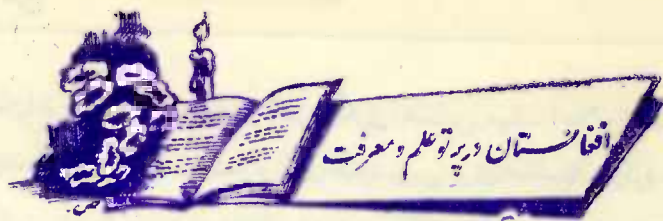 افغانستان در پرتو علم و معرفت